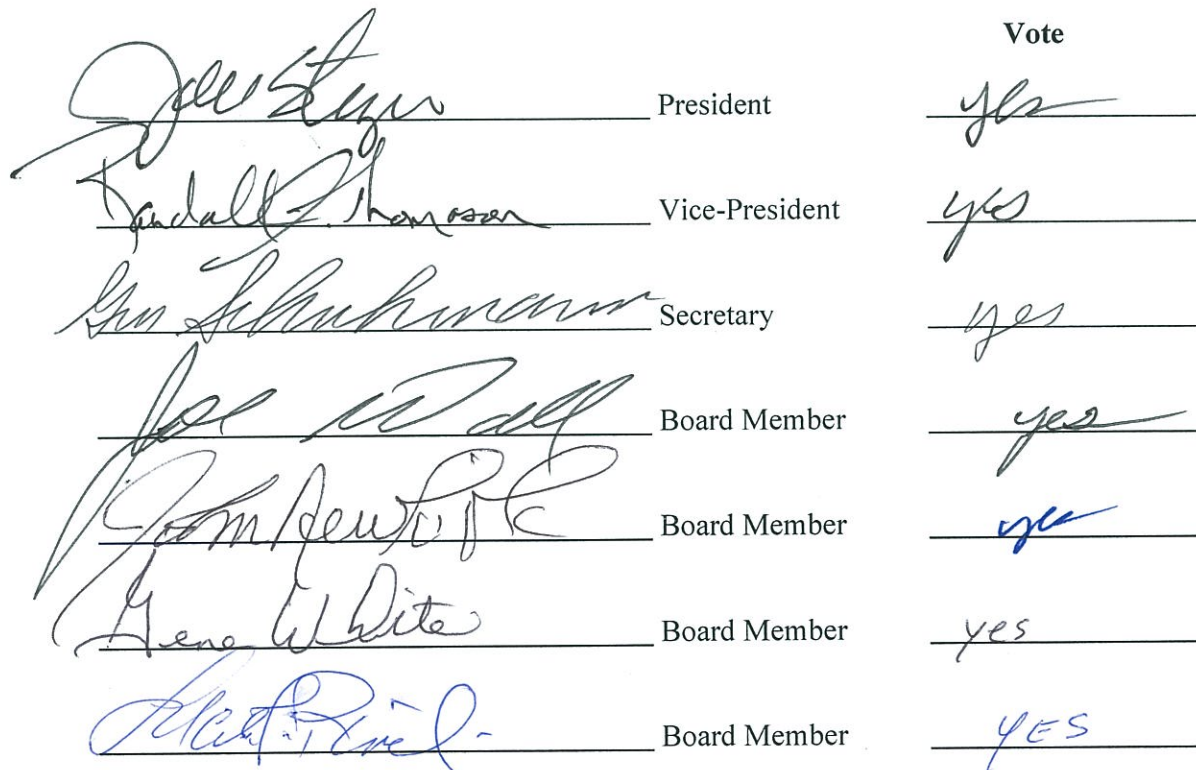 Vote
President yes
Randall Thomason Vice-President yes
Gus Schuhmann Secretary yes
Joe Wall Board Member yes
John Newkirk Board Member yes
Gene White Board Member yes
Board Member YES